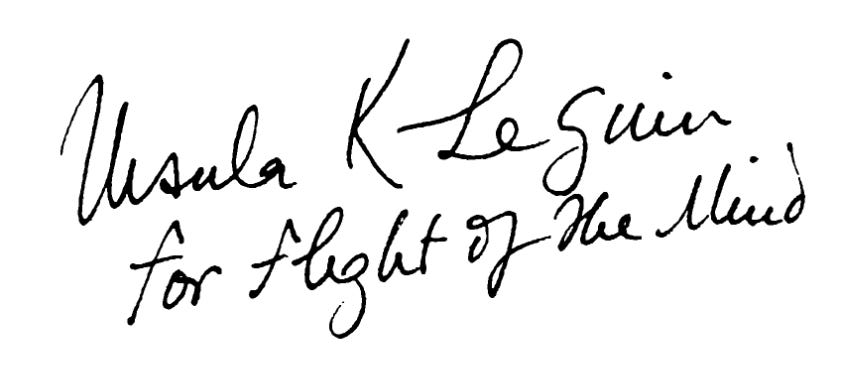 Ursula K Le Guin
for Flight of the Mind